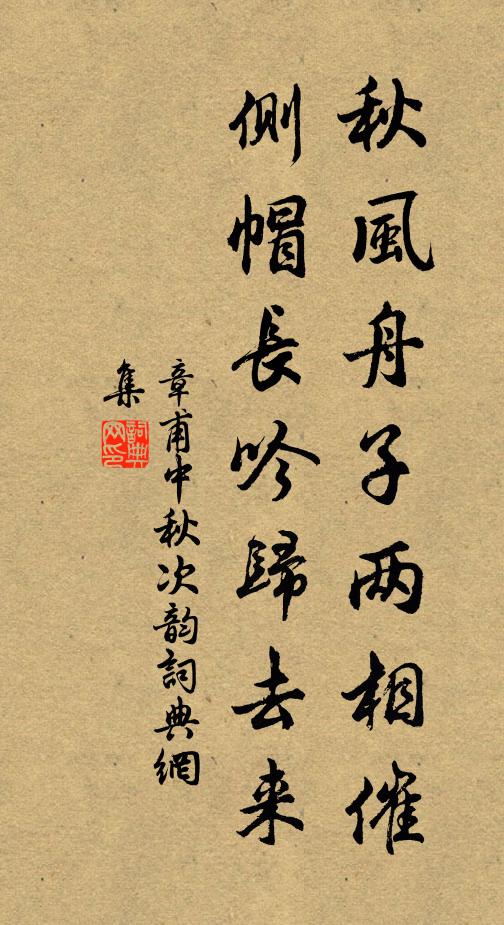 秋風舟子两相催
側帽長吟歸去来
章甫中秋次韵詞典網
集
詞典网印